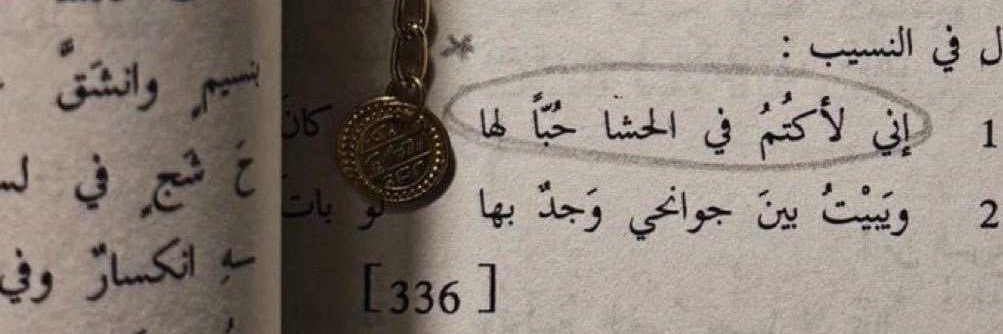 ل في النسيب :
1 إني لأكتُمُ في الحشا حُبّاً لها كانَ
2 ويَبيْتُ بينَ جوانحي وَجدٌ بها لو باتَ
[336]
وانشَقَّ
خَ شَجٍ في
سهِ انكسارٌ وفي